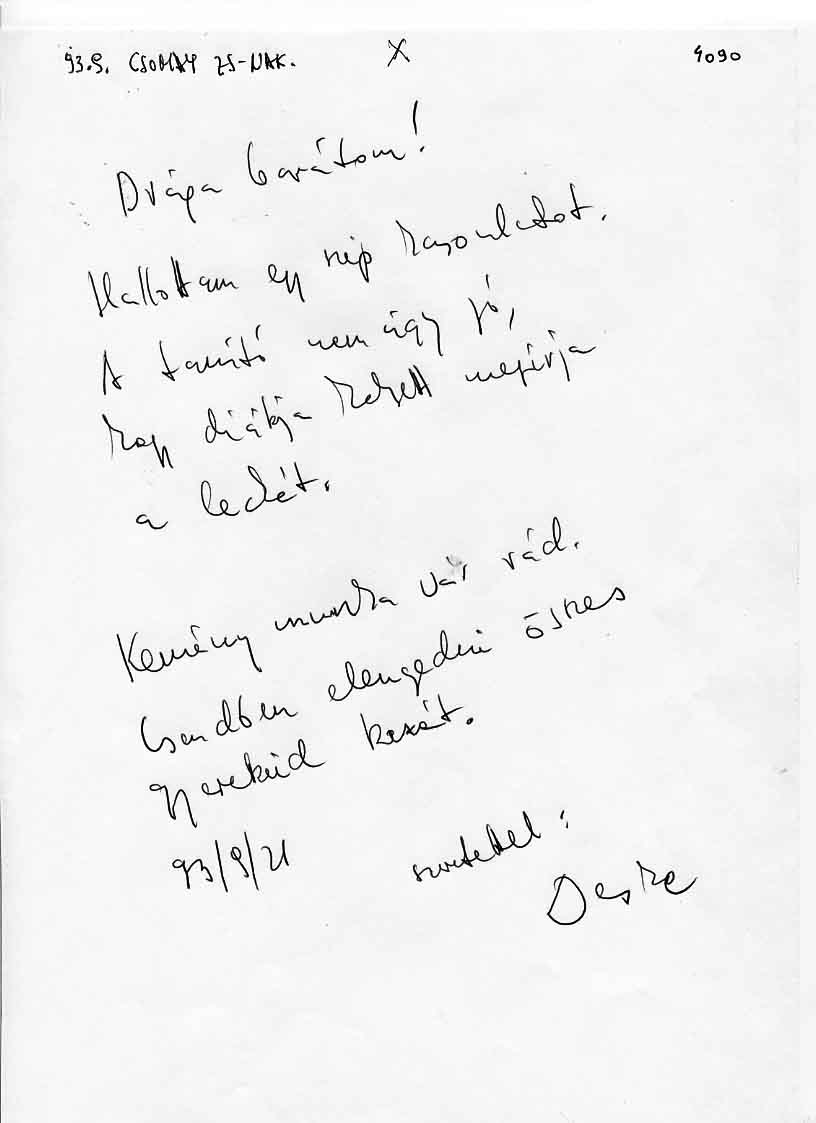 93.9. CSOMAY ZS-NAK. X 4090
Drága barátom!
Hallottam egy nép hasonlatot.
A tanító nem úgy jó,
hogy diákja helyett megírja
a leckét.
Kemény munka vár rád.
Csendben elengedni összes
gyerekeid kezét.
93/9/21 szeretettel:
Deske